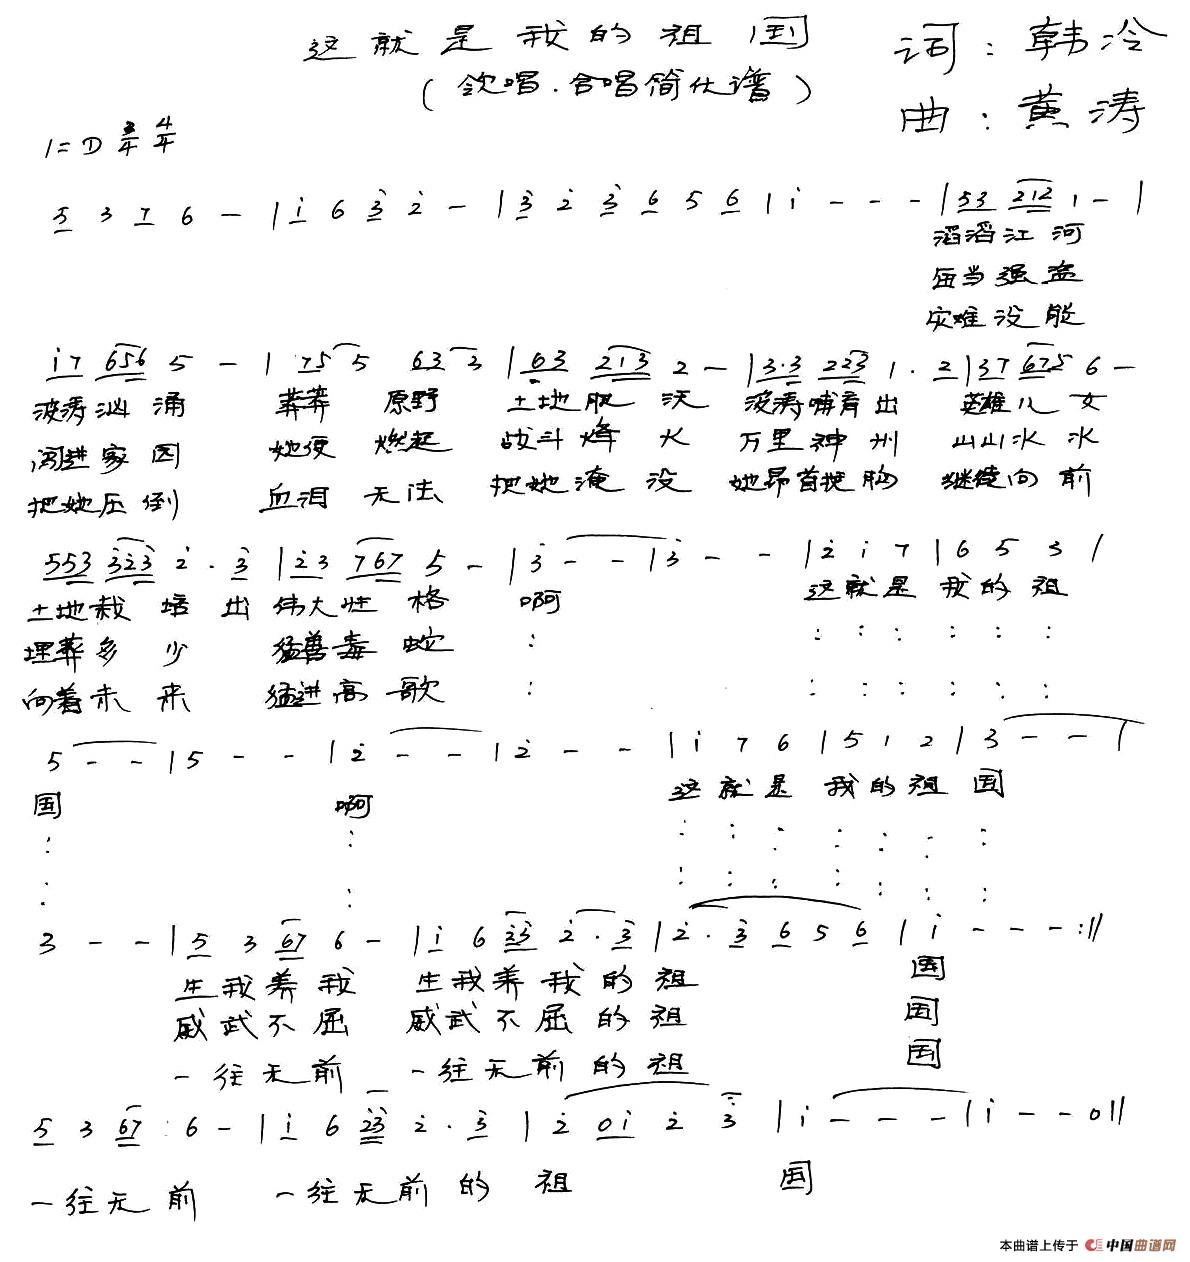 这就是我的祖国
(领唱.合唱简化谱)
词:韩冷
曲:黄涛
1=D 3/4 4/4
5 3 7 6 - | i 6 3 2 - | 3 2 3 6 5 6 | i - - - | 53 212 1 - |
滔滔江河
每当强盗
灾难没能
i7 656 5 - | 75 5 63 3 | 63 213 2 - | 3·3 223 1 · 2 | 37 675 6 -
波涛汹涌 莽莽 原野 土地肥沃 波涛哺育出 英雄儿女
闯进家园 她便 燃起 战斗烽火 万里神州 山山水水
把她压倒 血泪 无法 把她淹没 她昂首挺胸 继续向前
553 323 2 · 3 | 23 767 5 - | 3 - - | 3 - - | 2 i 7 | 6 5 3 |
土地栽培出 伟大性格 啊 这就是 我的祖
埋葬多少 猛兽毒蛇 : : : : : : :
向着未来 猛进高歌 : : : : : : :
5 - - | 5 - - | 2 - - | 2 - - | i 7 6 | 5 1 2 | 3 - - |
国 啊 这就是 我的祖国
: : : : : : : : :
: : : : : : : : :
3 - - | 5 3 67 6 - | i 6 23 2 · 3 | 2 · 3 6 5 6 | i - - - :||
生我养我 生我养我的祖 国
威武不屈 威武不屈的祖 国
一往无前 一往无前的祖 国
5 3 67 6 - | i 6 23 2 · 3 | 2 0i 2 3 | i - - - | i - - 0 ||
一往无前 一往无前的祖 国
本曲谱上传于 中国曲谱网